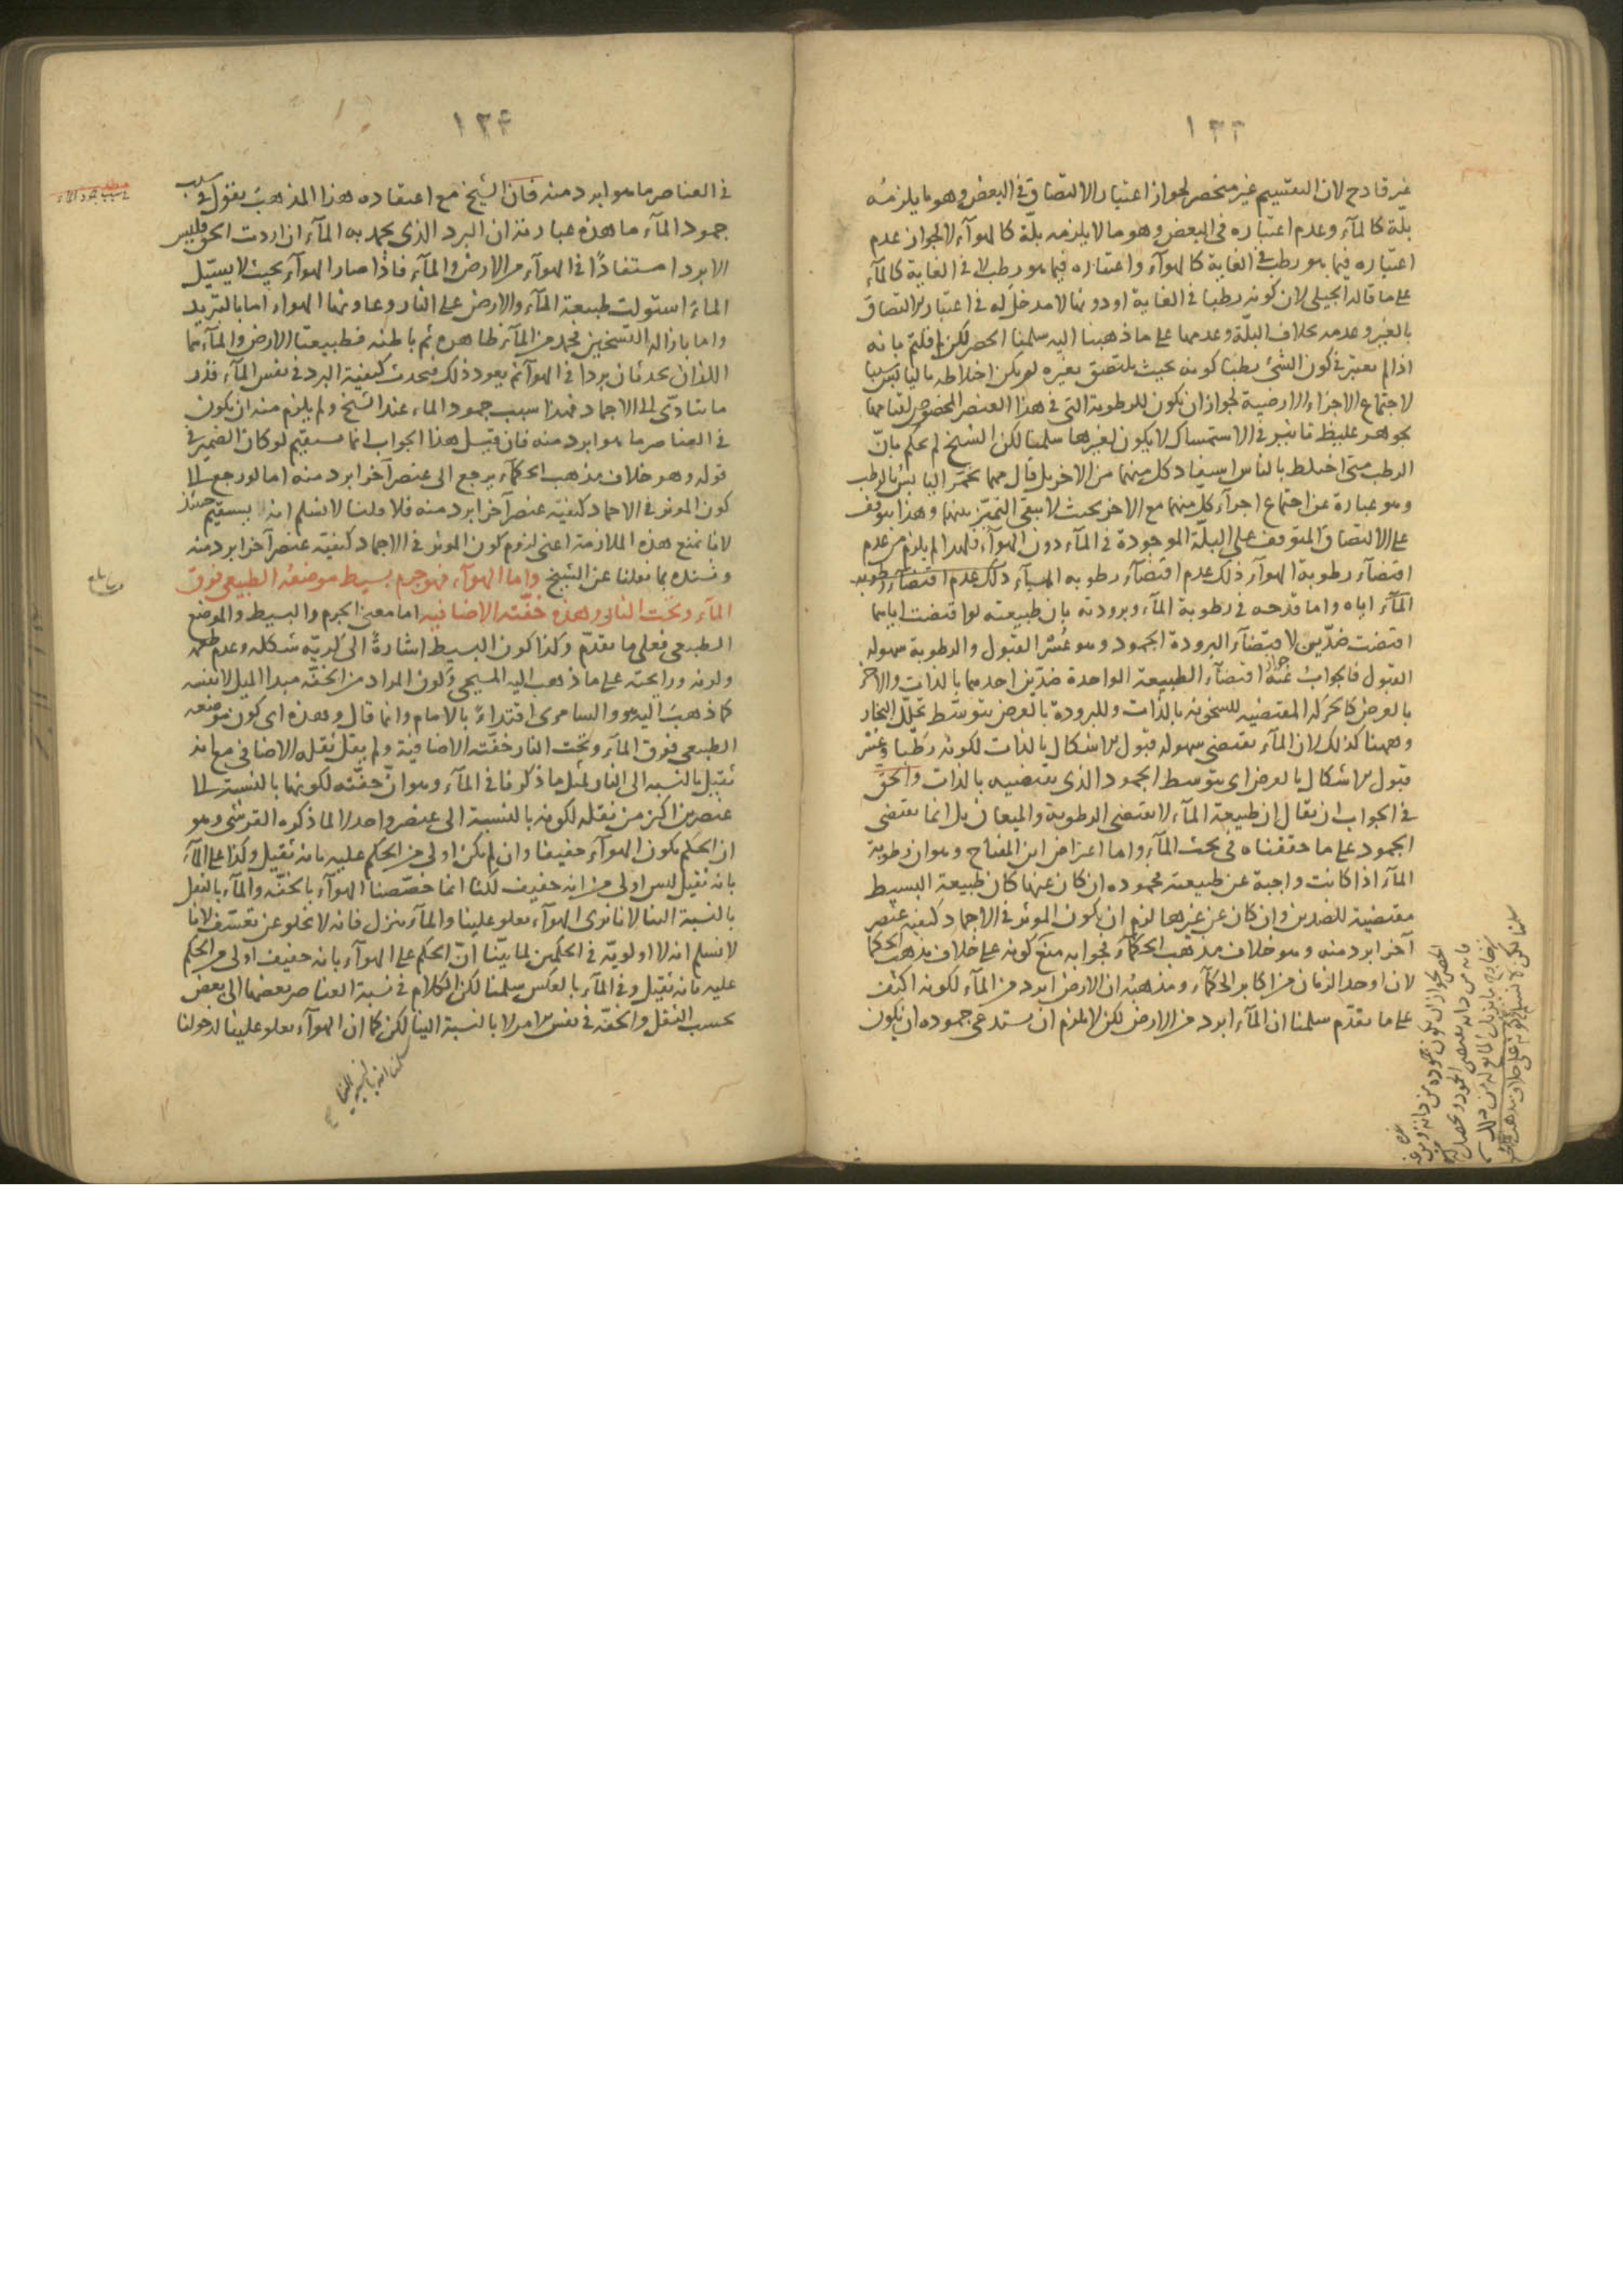 ١٣٣
غير قادح لان التقسيم غير منحصر لجواز اعتبار الالتصاق في البعض وهو ما يلزمه
بلة كالمآء وعدم اعتباره في البعض وهو ما لا يلزمه بلة كالهوآء لا لجواز عدم
اعتباره فيما هو رطب في الغاية كالهوآء واعتباره فيما هو رطب لا في الغاية كالمآء
على ما قاله الجيلى لان كونه رطبا في الغاية او دونها لا مدخل له في اعتبار الالتصاق
بالغير وعدمه بخلاف البلة وعدمها على ما ذهبنا اليه سلمنا الحصر لكن قلتم بانه
اذا لم يعتبر في كون الشئ رطبا كونه بحيث يلتصق بغيره لم يكن اخلاطه باليابس سببا
لاجتماع الاجزاء الارضية لجواز ان يكون للرطوبة التي في هذا العنصر المخصوص
بجوهر غليظ تاثير في الاستمساك لا يكون لغيرها سلمنا لكن الشيخ لم يحكم بانّ
الرطب متى اختلط باليابس استفاد كل منهما من الاخر بل قال مهما تخمّر اليابس بالرطب
وهو عبارة عن اجتماع اجزآء كلّ منهما مع الاخر بحيث لا يبقى التميّز بينهما وهذا يتوقف
على الالتصاق المتوقف على البلّة الموجودة في المآء دون الهوآء فلهذا لم يلزم من عدم
اقتضآء رطوبة الهوآء ذلك عدم اقتضآء رطوبة
المآء اياه واما قدحه في رطوبة المآء وبرودته بان طبيعته لو اقتضت اياهما
اقتضت ضدّين لاقتضآء البرودة الجمود وهو عُسْر القبول والرطوبة سهولة
القبول فالجواب عنه جواز اقتضآء الطبيعة الواحدة ضدّين احدهما بالذات والاخر
بالعرض كالحركة المقتضيه للسخونة بالذات وللبرودة بالعرض بتوسّط تحلّل البخار
وههنا كذلك لان المآء يقتضى سهولة قبول الاشكال بالذات لكونه رطبا وعُسْر
قبول الاشكال بالعرض اى بتوسط الجمود الذى يقتضيه بالذات والحقّ
في الجواب ان يقال ان طبيعة المآء لا تقتضى الرطوبة والميعان بل انما تقتضى
الجمود على ما حققناه في بحث المآء واما اعتراض ابن المفتاح وهو ان رطوبة
المآء اذا كانت واجبة عن طبيعته فجموده ان كان عنها كان طبيعة البسيط
مقتضية للضدين وان كان عن غيرها لزم ان يكون الموثر في الاجماد كيفية عنصر
آخر ابرد منه وهو خلاف مذهب الحكمآء فجوابه منع كونه على خلاف مذهب الحكما
لان اوحد الزمان من اكابر الحكمآء ومذهبه ان الارض ابرد من المآء لكونه اكثف
على ما تقدّم سلمنا ان المآء ابرد من الارض لكن لا يلزم ان يستدعى جموده ان يكون
١٣٤
في العناصر ما هو ابرد منه فان الشيخ مع اعتقاده هذا المذهب يقول في سبب
جمود المآء ما هذه عبارته ان البرد الذى يجمد به المآء ان اردت الحق فليس
الا بردا مستفادًا في الهوآء من الارض والمآء فاذا صار الهوآء بحيث لا يسيّل
المآء استولت طبيعة المآء والارض على النار وعاونهما الهواء اما بالتبريد
واما بازالة التسخين فجمد من المآء ظاهره ثم باطنه فطبيعتا الارض والمآء هما
اللذان يحدثان بردا في الهوآء ثم يعود ذلك فيحدث كيفية البرد في نفس المآء قدر
ما يتادّى الى الاجماد فهذا سبب جمود الماء عند الشيخ ولم يلزم منه ان يكون
في العناصر ما هو ابرد منه فان قيل هذا الجواب انما يستقيم لو كان الضمير في
قوله وهو خلاف مذهب الحكمآء يرجع الى عنصر آخر ابرد منه اما لو رجع الى
كون الموثر في الاجماد كيفية عنصر آخر ابرد منه فلا قلنا لا نسلم انه لا يستقيم حينئذ
لانا نمنع هذه الملازمة اعنى لزوم كون الموثر في الاجماد كيفية عنصر آخر ابرد منه
ونسنده بما نقلنا عن الشيخ واما الهوآء فهو جرم بسيط موضعه الطبيعى فوق
المآء وتحت النار وهذه خفّته الاضافية اما معنى الجرم والبسيط والموضع
الطبيعى فعلى ما تقدّم وكذا كون البسيط اشارةً الى كريّة شكله وعدم طعمه
ولونه ورايحته على ما ذهب اليه المسيحى وكون المراد من الخفّة مبدا الميل لا نفسه
كما ذهب اليه هو والسامرى اقتداءً بالامام وانما قال وهذه اى كون موضعه
الطبيعى فوق المآء وتحت النار خفّته الاضافية ولم يقل ثقله الاضافى مع انه
ثقيل بالنسبة الى النار لمثل ما ذكرنا في المآء وهو انّ خفّته لكونها بالنسبة الى
عنصرين اكثر من ثقله لكونه بالنسبة الى عنصر واحد لا لما ذكره القرشى وهو
ان الحكم بكون الهوآء خفيفا وان لم يكن اولى من الحكم عليه بانه ثقيل وكذا على المآء
بانه ثقيل ليس اولى من انه خفيف لكنا انما خصّصنا الهوآء بالخفّة والمآء بالثقل
بالنسبة الينا لانا نرى الهوآء يعلو علينا والمآء ينزل فانه لا يخلو عن تعسّف لانا
لا نسلم انه لا اولويّة في الحكمين لما بيّنّا انّ الحكم على الهوآء بانه خفيف اولى من الحكم
عليه بانه ثقيل وفي المآء بالعكس سلمنا لكن الكلام في نسبة العناصر بعضها الى بعض
بحسب الثقل والخفّة في نفس الامر لا بالنسبة الينا لكن كما ان الهوآء يعلو علينا
سلمنا انه بالنسبة الينا